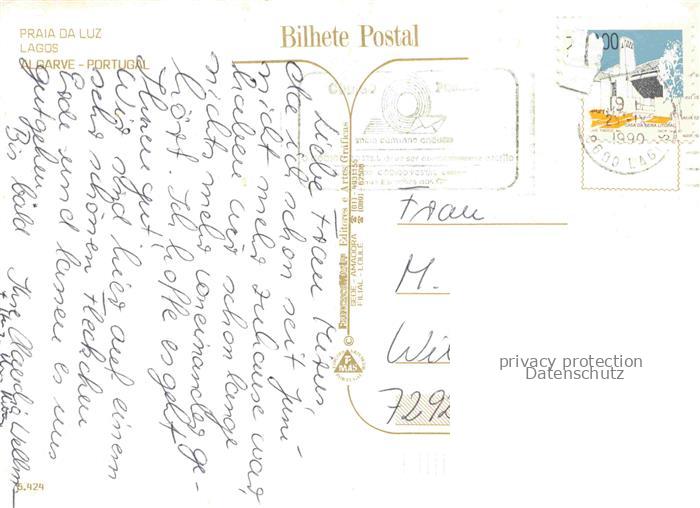 PRAIA DA LUZ
LAGOS
ALGARVE - PORTUGAL
Bilhete Postal
Liebe Frau
da ich schon seit Juni
nicht mehr zuhause war,
haben wir schon lange
nichts mehr voneinander ge-
hört. Ich hoffe es geht
Ihnen gut!
Wir sind hier auf einem
sehr schönen Fleckchen
Erde und lassen es uns
gutgehen.
Bis bald Ihre Claudia
Editores e Artes Gráficas
SEDE - AMADORA
FILIAL - LOULÉ
19
1990
8600 LAGOS
Frau
M.
Wil
7292
privacy protection
Datenschutz
S.424